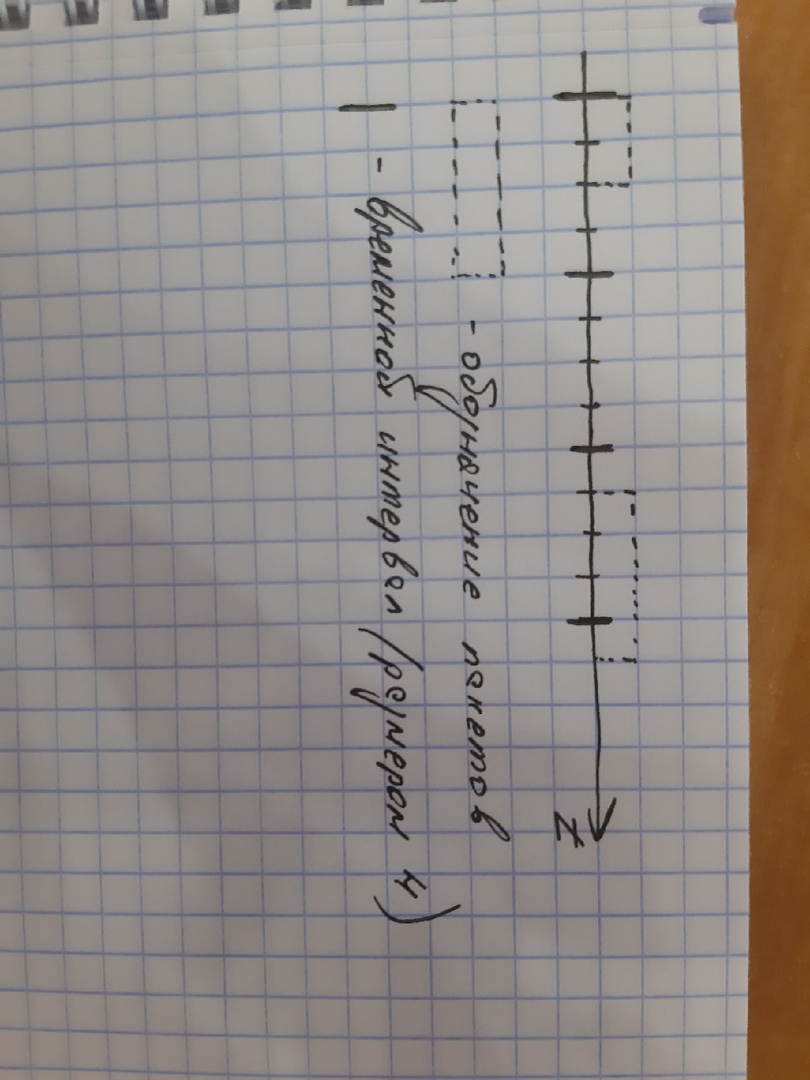 t
- обозначение пакетов
- временной интервал (размером 4)